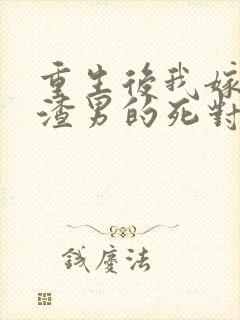 重生後我嫁
渣男的死對
錢慶法